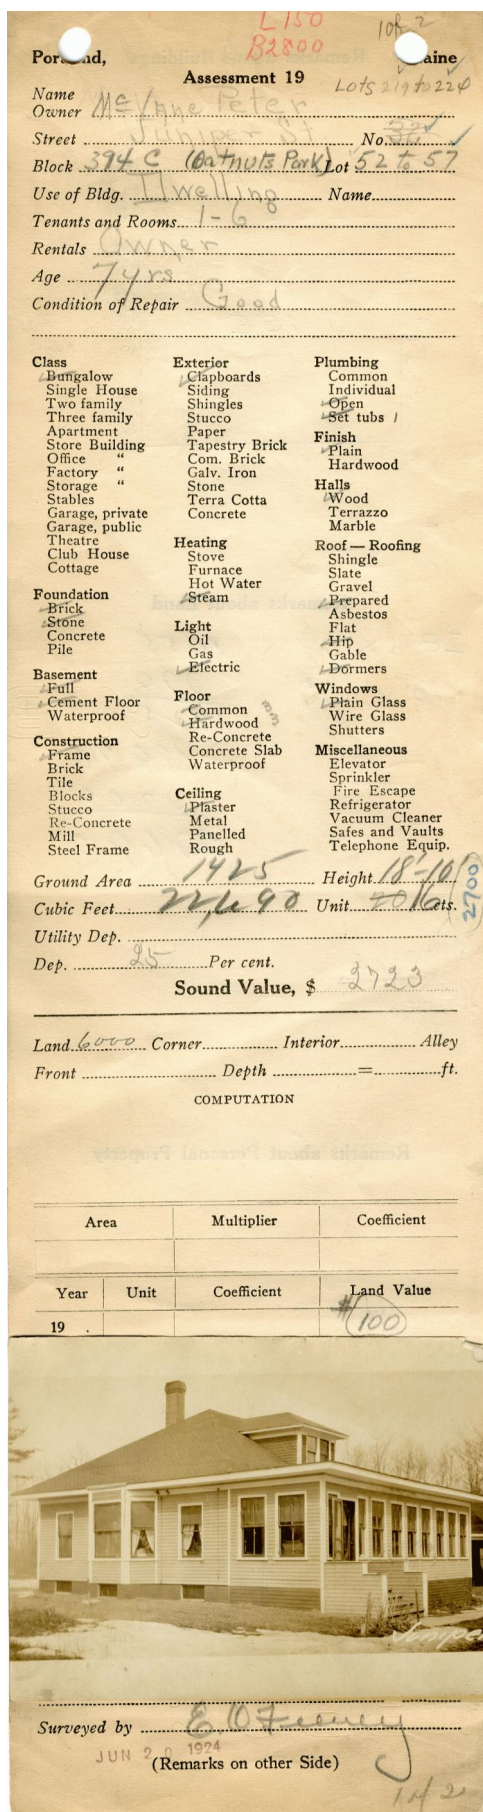 L 150
1 of 2
B 2800
Portland, Maine
Assessment 19
Lots 219 to 224
Name
Owner Peter
Street Juniper St No.
Block 394 C (Oatnuts Park) Lot 52 to 57
Use of Bldg. Dwelling Name
Tenants and Rooms 1-6
Rentals Owner
Age 7 yrs
Condition of Repair Good
Class
Bungalow
Single House
Two family
Three family
Apartment
Store Building
Office "
Factory "
Storage "
Stables
Garage, private
Garage, public
Theatre
Club House
Cottage
Foundation
Brick
Stone
Concrete
Pile
Basement
Full
Cement Floor
Waterproof
Construction
Frame
Brick
Tile
Blocks
Stucco
Re-Concrete
Mill
Steel Frame
Exterior
Clapboards
Siding
Shingles
Stucco
Paper
Tapestry Brick
Com. Brick
Galv. Iron
Stone
Terra Cotta
Concrete
Heating
Stove
Furnace
Hot Water
Steam
Light
Oil
Gas
Electric
Floor
Common
Hardwood
Re-Concrete
Concrete Slab
Waterproof
Ceiling
Plaster
Metal
Panelled
Rough
Plumbing
Common
Individual
Open
Set tubs 1
Finish
Plain
Hardwood
Halls
Wood
Terrazzo
Marble
Roof — Roofing
Shingle
Slate
Gravel
Prepared
Asbestos
Flat
Hip
Gable
Dormers
Windows
Plain Glass
Wire Glass
Shutters
Miscellaneous
Elevator
Sprinkler
Fire Escape
Refrigerator
Vacuum Cleaner
Safes and Vaults
Telephone Equip.
Ground Area 1425 Height 18'-10'
Cubic Feet 22,690 Unit 16 cts.
2700
Utility Dep.
Dep. 25 Per cent.
Sound Value, $ 2723
Land 6000 Corner Interior Alley
Front Depth = ft.
COMPUTATION
Area Multiplier Coefficient
Year Unit Coefficient Land Value
19 . #100
Surveyed by E. O Feeney
JUN 20 1924
(Remarks on other Side)
1 of 2